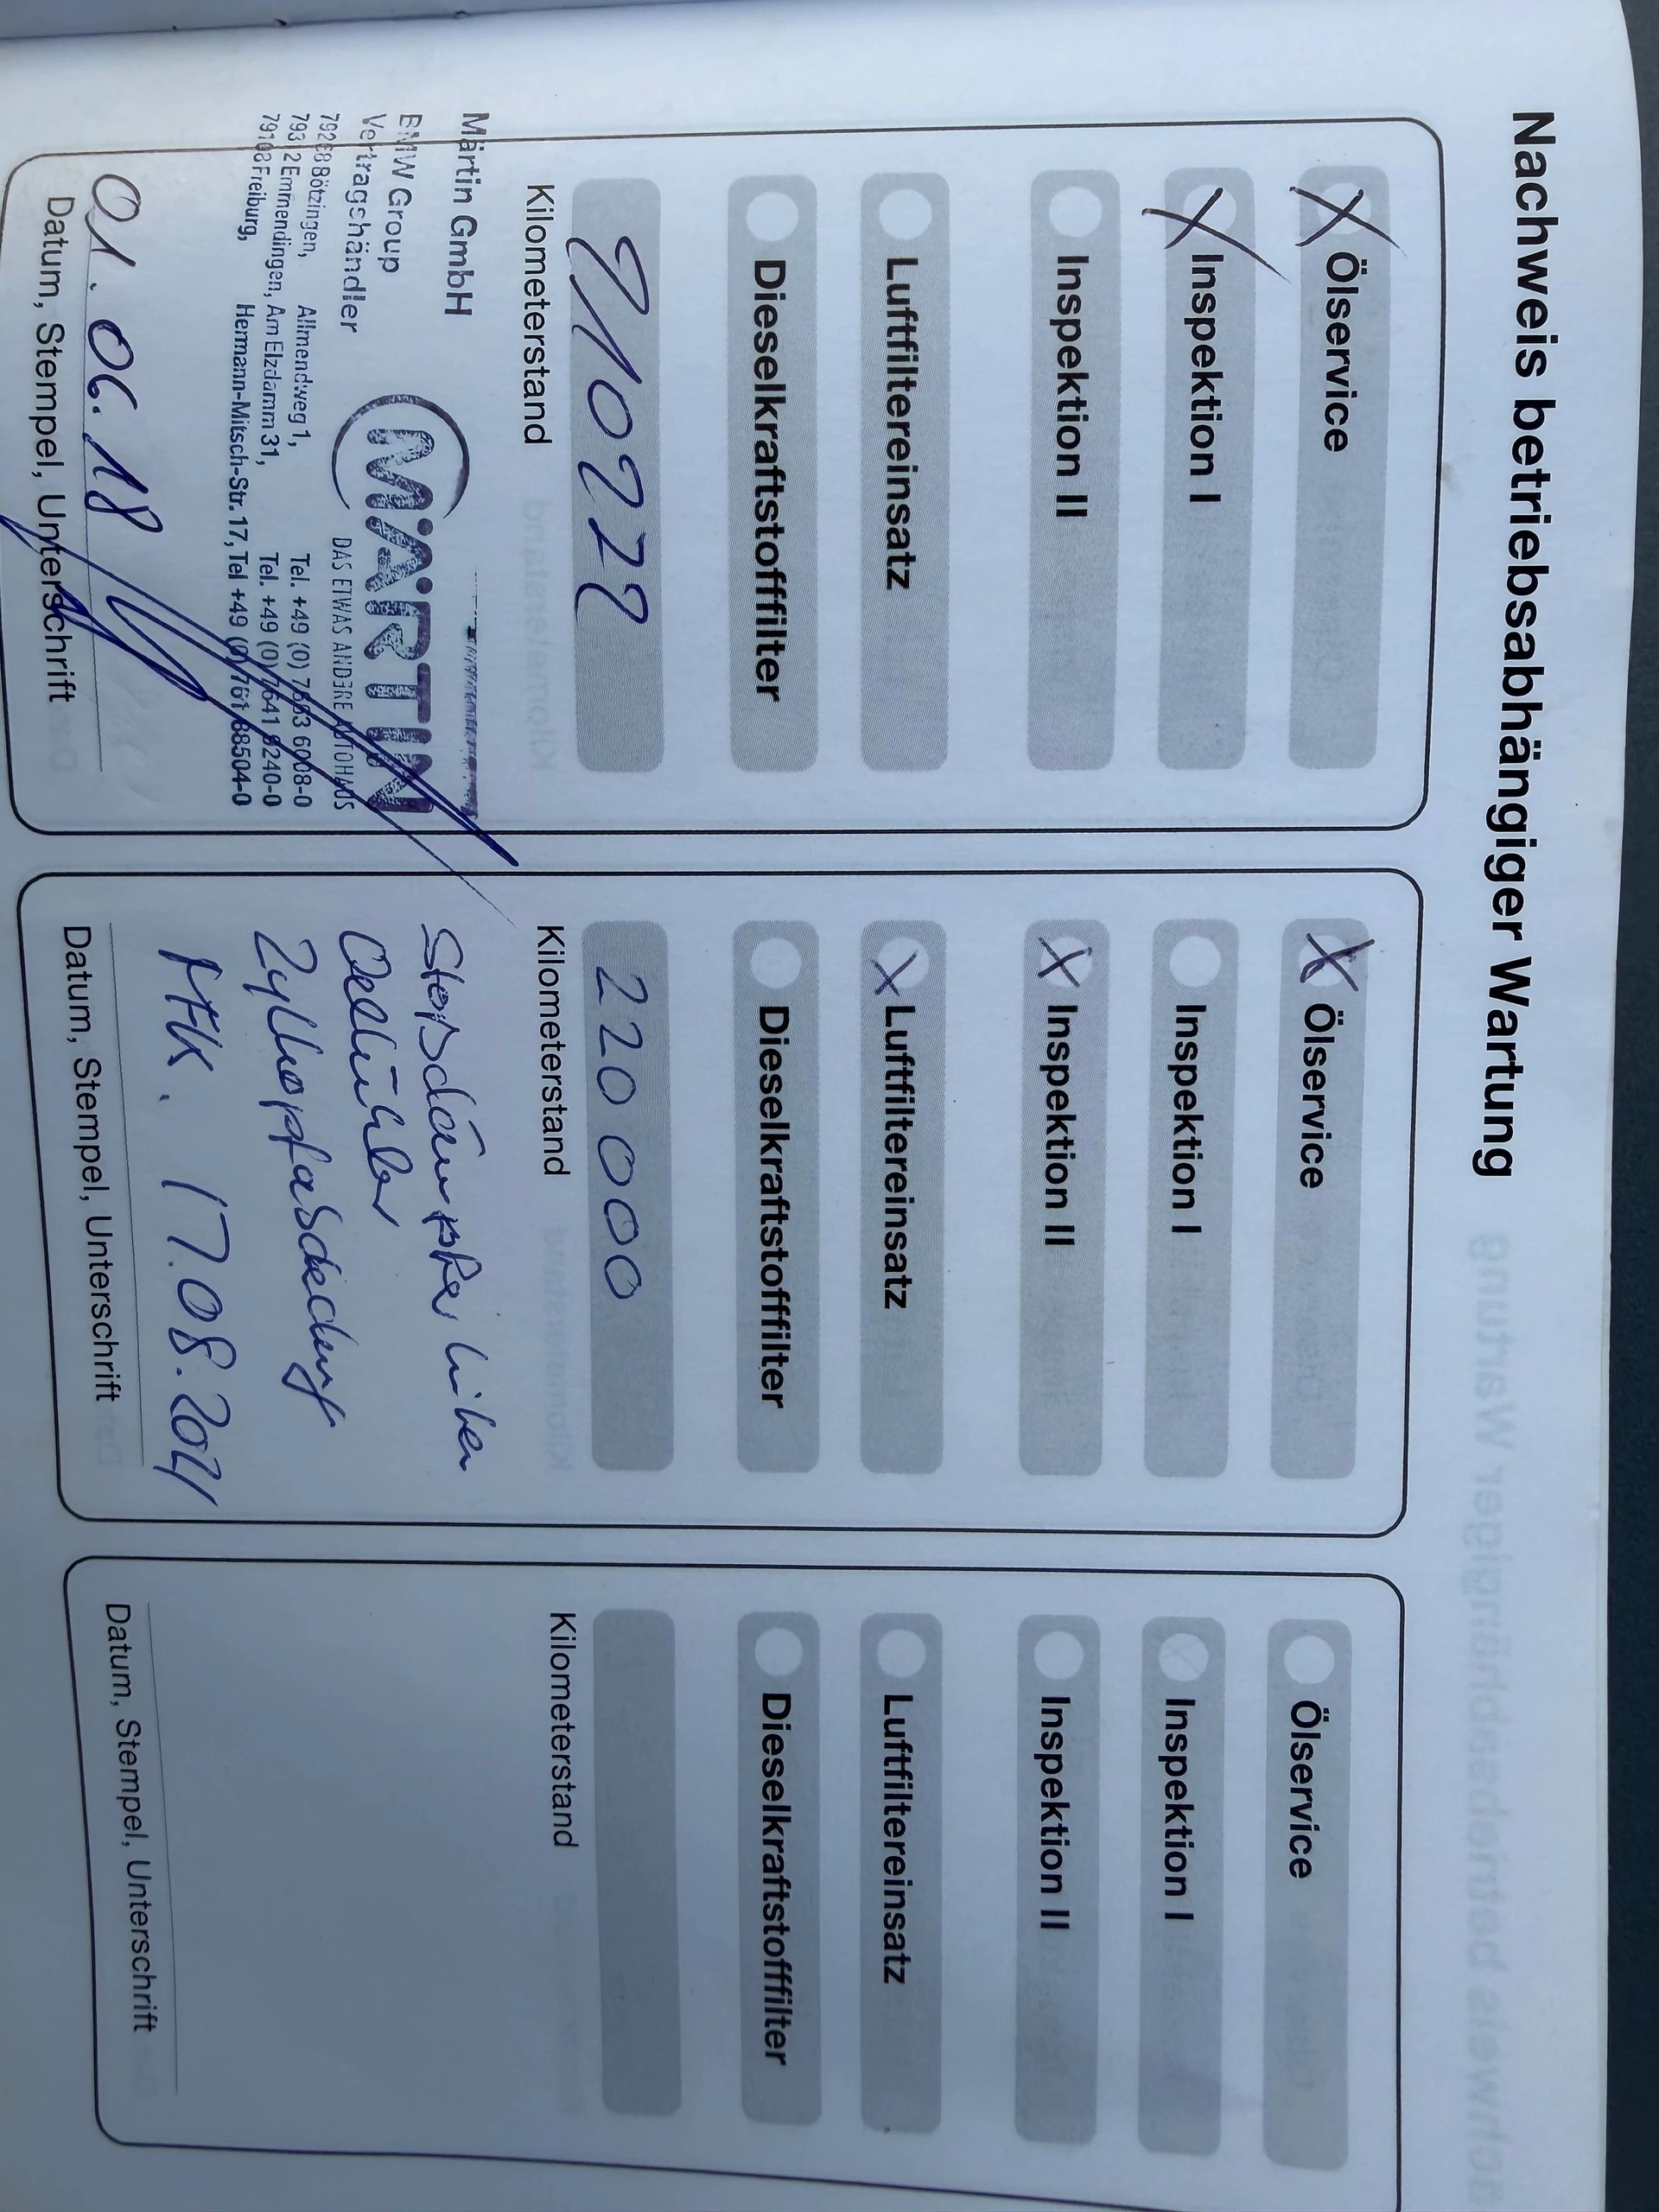 Nachweis betriebsabhängiger Wartung
X Ölservice
X Inspektion I
Inspektion II
Luftfiltereinsatz
Dieselkraftstofffilter
Kilometerstand
Märtin GmbH
BMW Group
Vertragshändler
MÄRTIN
DAS ETWAS ANDERE AUTOHAUS
79268 Bötzingen, Allmendweg 1, Tel. +49 (0) 7663 6008-0
79312 Emmendingen, Am Elzdamm 31, Tel. +49 (0) 7641 9240-0
79108 Freiburg, Hermann-Mitsch-Str. 17, Tel +49 (0) 761 88504-0
01.06.18
Datum, Stempel, Unterschrift
X Ölservice
Inspektion I
X Inspektion II
X Luftfiltereinsatz
Dieselkraftstofffilter
220000
Kilometerstand
Stoßdämpfer hinten
Oelkühler
Zylkopfabdeckung
17.08.2021
Datum, Stempel, Unterschrift
Ölservice
Inspektion I
Inspektion II
Luftfiltereinsatz
Dieselkraftstofffilter
Kilometerstand
Datum, Stempel, Unterschrift